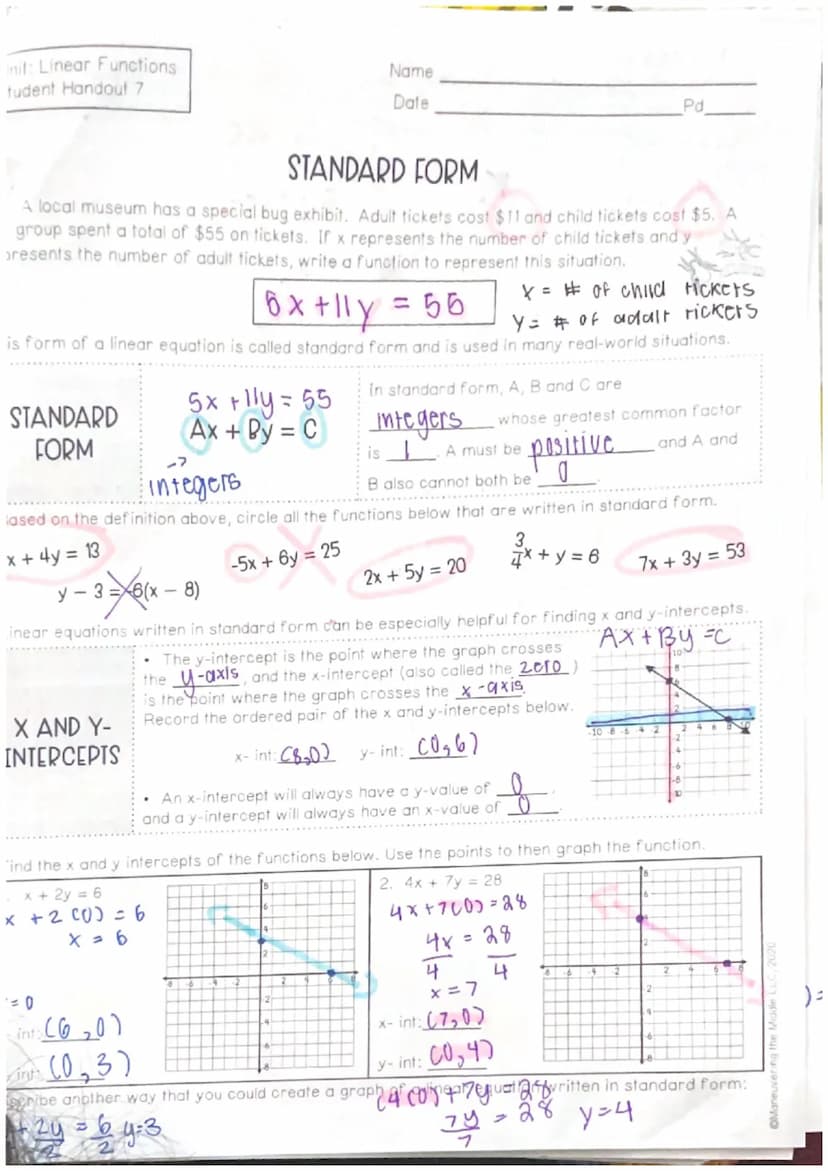 nit: Linear Functions
tudent Handout 7
Name
Date Pd
STANDARD FORM
A local museum has a special bug exhibit. Adult tickets cost $11 and child tickets cost $5. A
group spent a total of $55 on tickets. If x represents the number of child tickets and y
presents the number of adult tickets, write a function to represent this situation.
5x+11y = 55
x = # of child tickets
y = # of adult tickets
is form of a linear equation is called standard form and is used in many real-world situations.
STANDARD
FORM
5x + 11y = 55
Ax + By = C
→
integers
In standard form, A, B and C are
integers whose greatest common factor
is 1. A must be positive and A and
B also cannot both be 0.
ased on the definition above, circle all the functions below that are written in standard form.
x + 4y = 13
-5x + 6y = 25
2x + 5y = 20
3/4x + y = 6
7x + 3y = 53
y - 3 = -6(x - 8)
inear equations written in standard form can be especially helpful for finding x and y-intercepts.
X AND Y-
INTERCEPTS
• The y-intercept is the point where the graph crosses
the y-axis, and the x-intercept (also called the zero)
is the point where the graph crosses the x-axis.
Record the ordered pair of the x and y-intercepts below.
x- int: (8,0) y- int: (0,6)
• An x-intercept will always have a y-value of 0.
and a y-intercept will always have an x-value of 0.
Ax + By = C
ind the x and y intercepts of the functions below. Use the points to then graph the function.
x + 2y = 6
x + 2(0) = 6
x = 6
= 0
int: (6,0)
int: (0,3)
2. 4x + 7y = 28
4x+7(0)=28
4x = 28
4 4
x = 7
x- int: (7,0)
y- int: (0,4)
scribe another way that you could create a graph of a linear equation written in standard form:
(4(0)+7y = 28
7y = 28 y=4
7
+ 2y = 6 y=3
2 2
©Maneuvering the Middle LLC, 2020